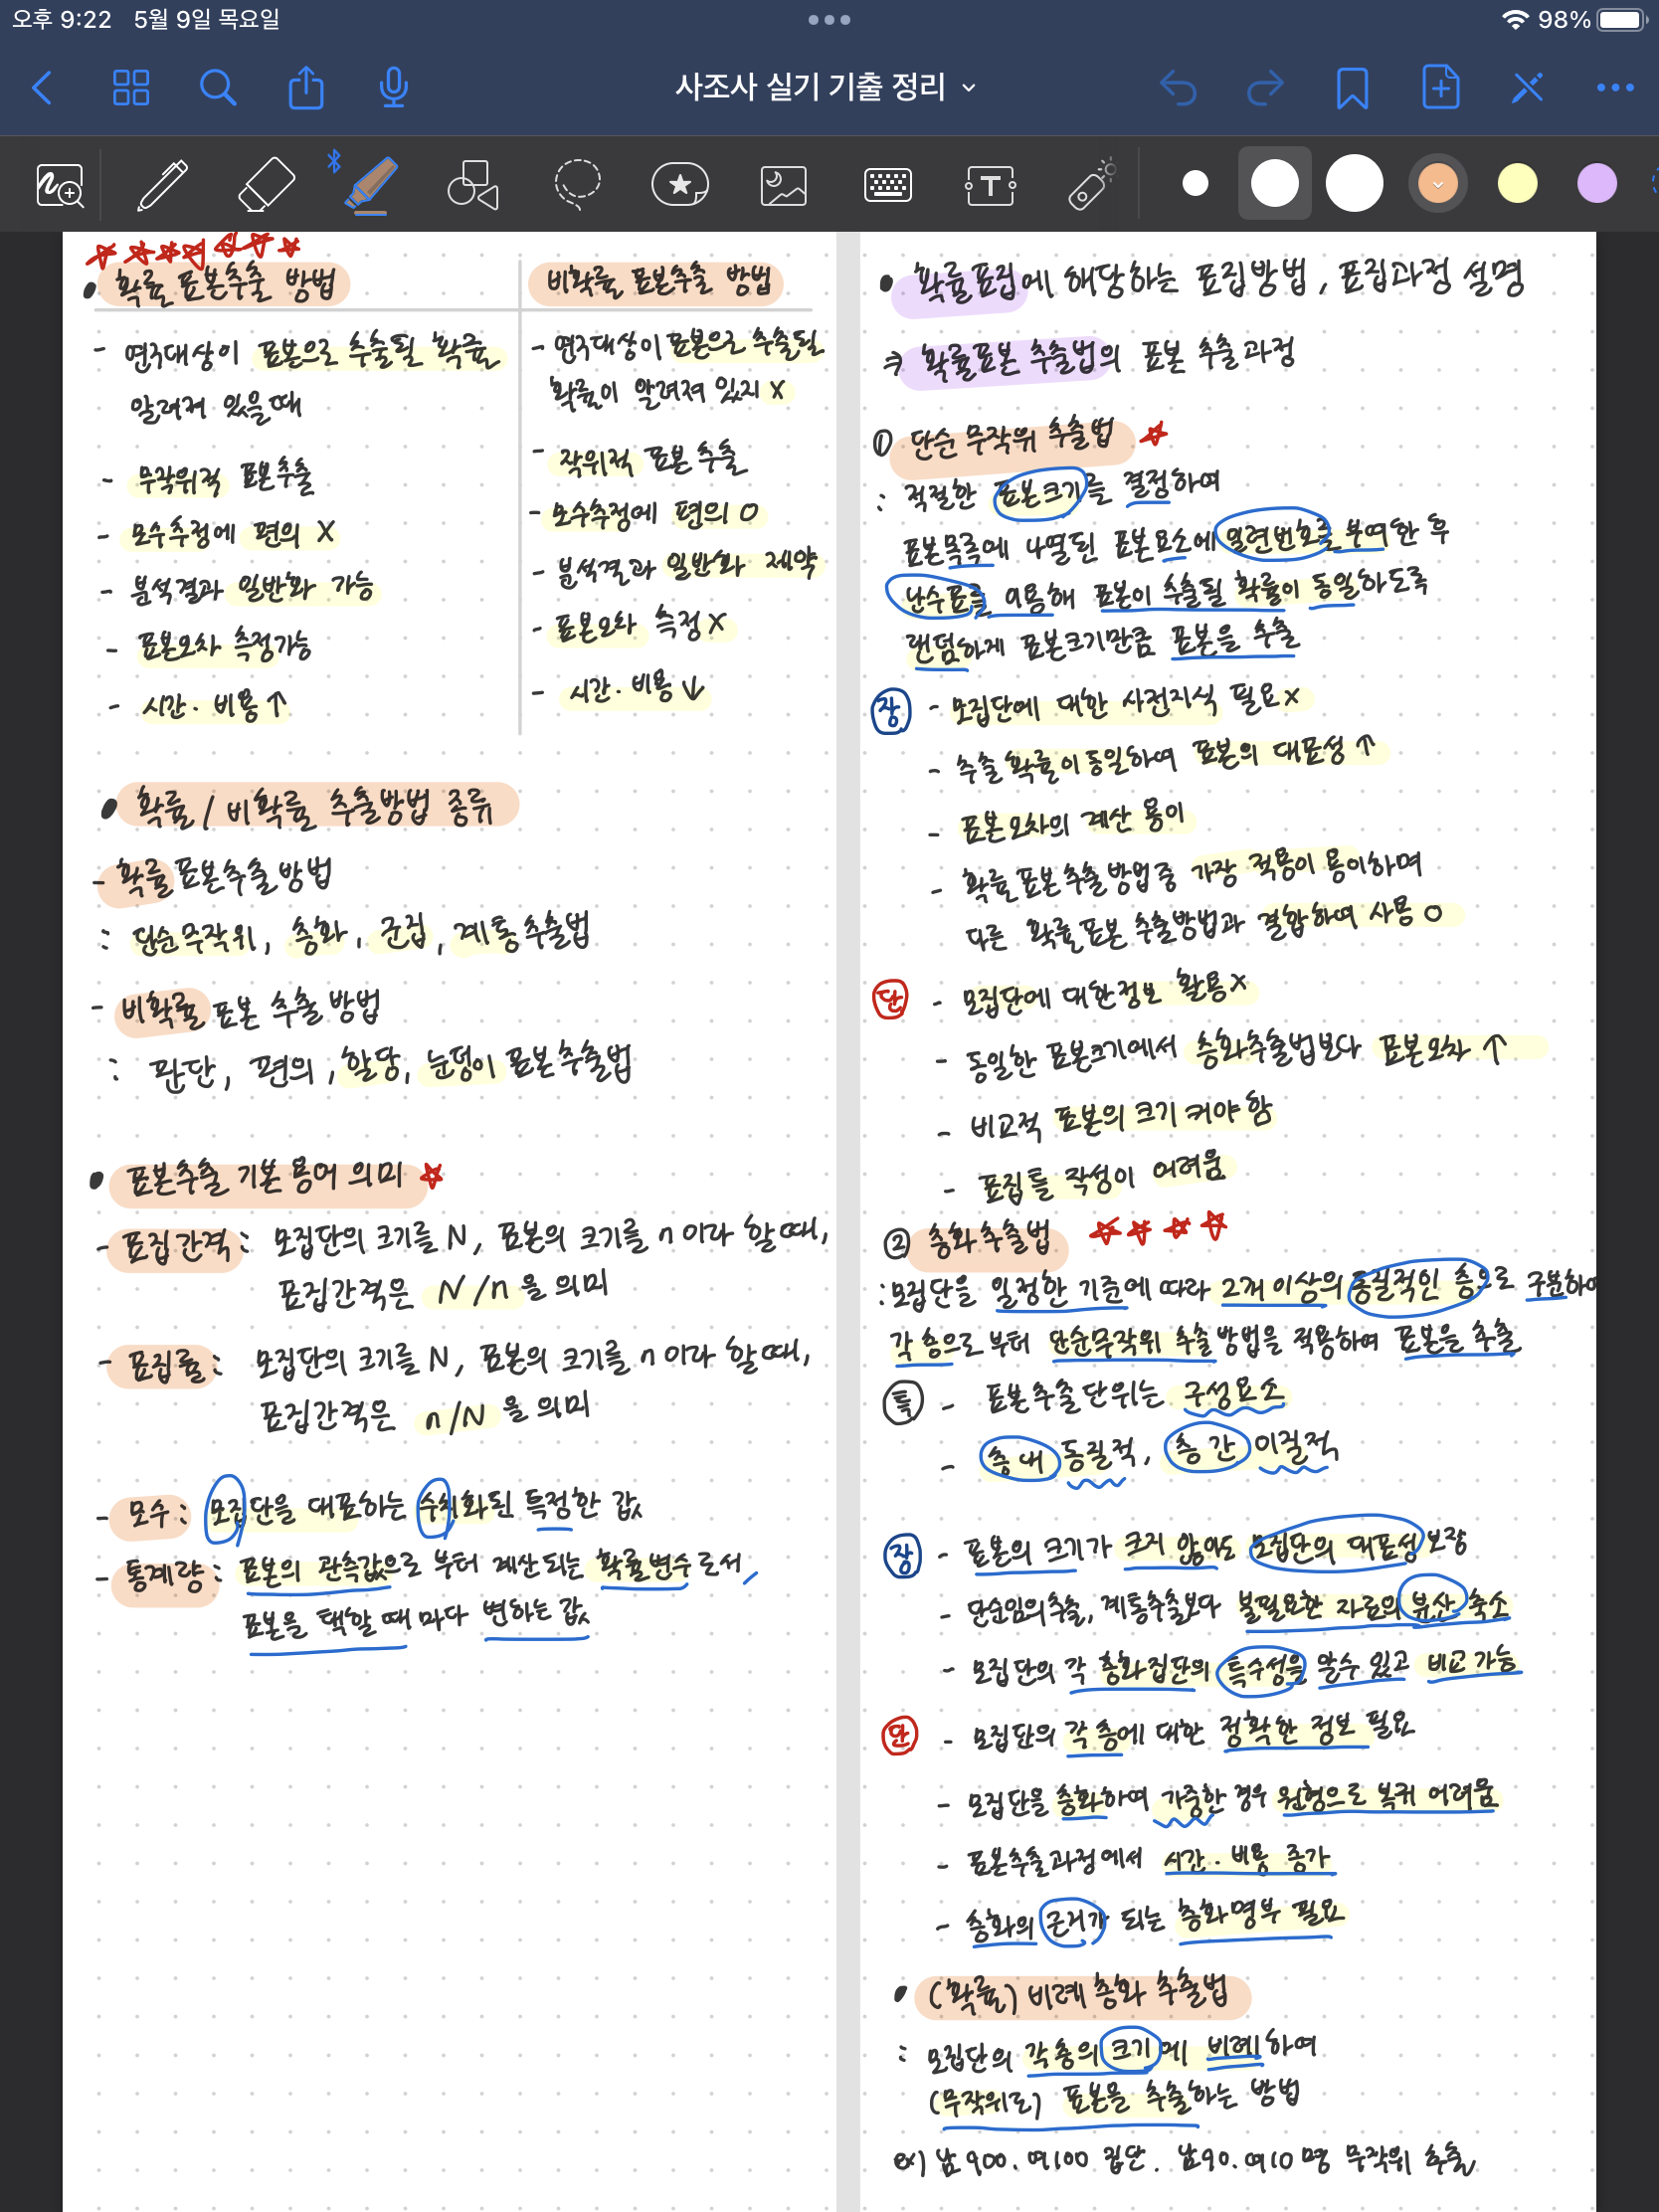 오후 9:22 5월 9일 목요일
98%
사조사 실기 기출 정리
확률 표본추출 방법
- 연구대상이 표본으로 추출될 확률
알려져 있을때
- 무작위적 표본추출
- 모수추정에 편의 X
- 분석결과 일반화 가능
- 표본오차 측정가능
- 시간·비용 ↑
비확률 표본추출 방법
- 연구대상이 표본으로 추출될
확률이 알려져 있지 X
- 작위적 표본 추출
- 모수추정에 편의 O
- 분석결과 일반화 제약
- 표본오차 측정 X
- 시간·비용 ↓
• 확률 / 비확률 추출방법 종류
- 확률 표본추출 방법
: 단순무작위, 층화, 군집, 계통추출법
- 비확률 표본 추출 방법
: 판단, 편의, 할당, 눈덩이 표본추출법
• 표본추출 기본 용어 의미 ☆
- 표집간격 : 모집단의 크기를 N, 표본의 크기를 n 이라 할때,
표집간격은 N/n 을 의미
- 표집률 : 모집단의 크기를 N, 표본의 크기를 n 이라 할때,
표집간격은 n/N 을 의미
- 모수 : 모집단을 대표하는 수치화된 특정한 값
- 통계량 : 표본의 관측값으로 부터 계산되는 확률변수로서,
표본을 택할 때 마다 변하는 값
• 확률표집에 해당하는 표집방법, 표집과정 설명
확률표본 추출법의 표본 추출과정
① 단순 무작위 추출법 ☆
: 적절한 표본크기를 결정하여
표본목록에 나열된 표본요소에 일련번호를 부여한 후
난수표를 이용해 표본이 추출될 확률이 동일하도록
랜덤하게 표본크기만큼 표본을 추출
장 - 모집단에 대한 사전지식 필요 X
- 추출 확률이 동일하여 표본의 대표성 ↑
- 표본오차의 계산 용이
- 확률 표본추출 방법중 가장 적용이 용이하며
다른 확률표본 추출방법과 결합하여 사용 O
단 - 모집단에 대한정보 활용 X
- 동일한 표본크기에서 층화추출법보다 표본오차 ↑
- 비교적 표본의 크기 커야 함
- 표집틀 작성이 어려움
② 층화추출법 ☆☆☆☆
: 모집단을 일정한 기준에 따라 2개 이상의 동질적인 층으로 구분하여
각 층으로 부터 단순무작위 추출 방법을 적용하여 표본을 추출
특 - 표본추출단위는 구성요소
- 층 내 동질적, 층 간 이질적
장 - 표본의 크기가 크지 않아도 모집단의 대표성 보장
- 단순임의추출, 계통추출보다 불필요한 자료의 분산 축소
- 모집단의 각 층화집단의 특수성을 알수 있고 비교 가능
단 - 모집단의 각 층에 대한 정확한 정보 필요
- 모집단을 층화하여 가중한 경우 원형으로 복귀 어려움
- 표본추출과정에서 시간·비용 증가
- 층화의 근거가 되는 층화명부 필요
• (확률) 비례 층화 추출법
: 모집단의 각 층의 크기에 비례하여
(무작위로) 표본을 추출하는 방법
ex) 남900. 여100 집단. 남90. 여10명 무작위 추출